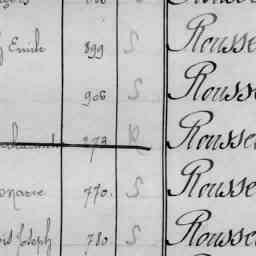 Emile 899 S Rousse
906 S Rousse
273 R Rousse
770. S Rousse
Joseph 780. S Rousse